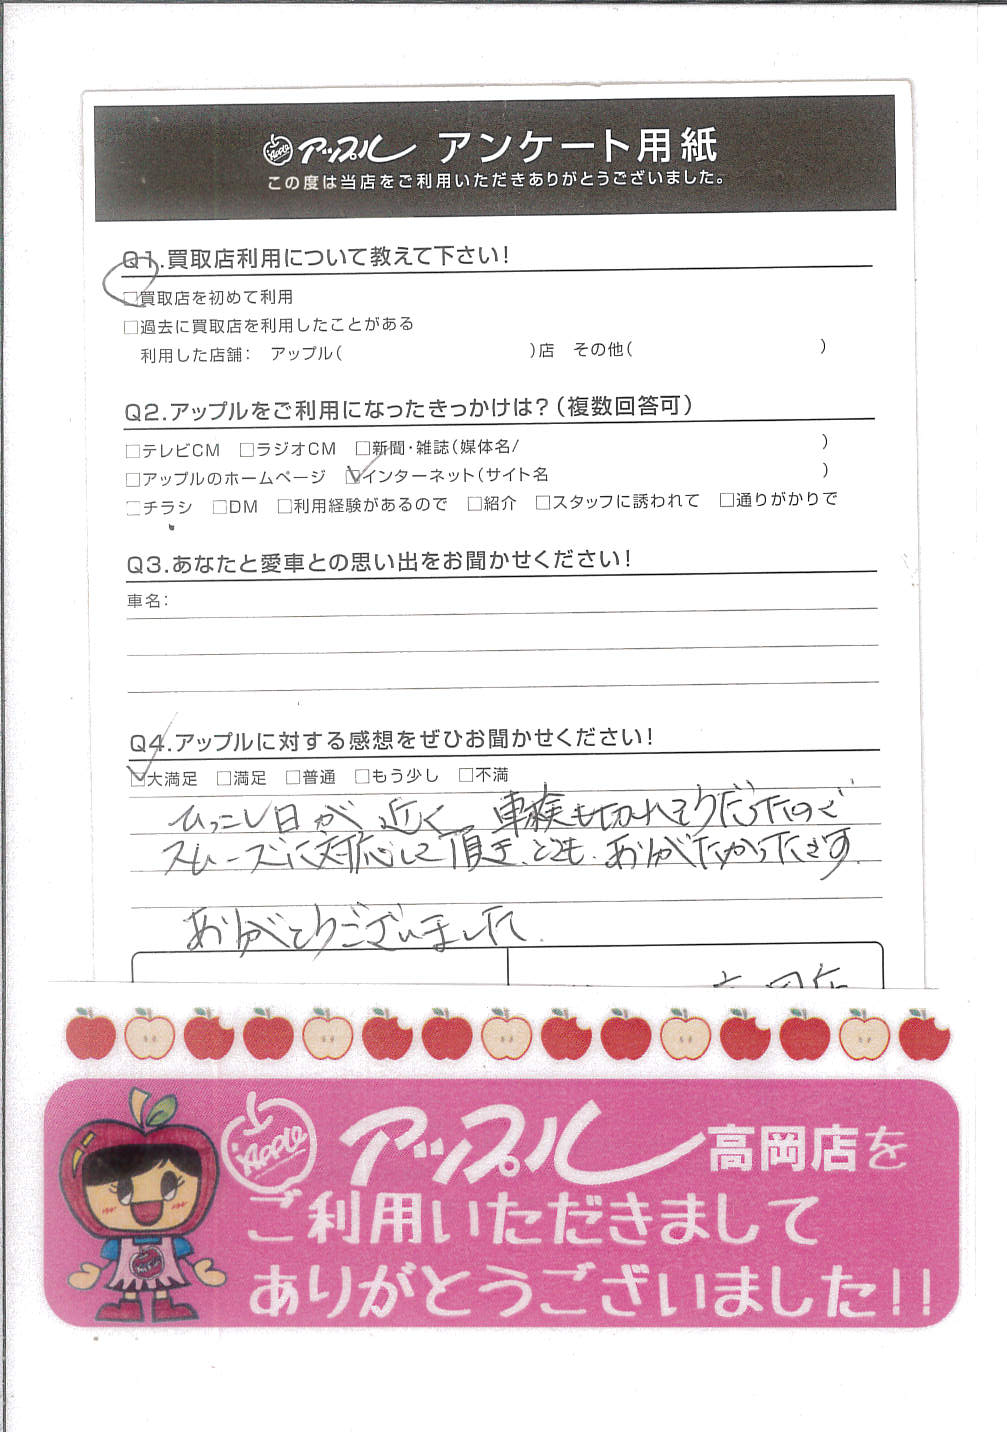 Apple アップル アンケート用紙
この度は当店をご利用いただきありがとうございました。
Q1.買取店利用について教えて下さい!
□買取店を初めて利用
□過去に買取店を利用したことがある
利用した店舗: アップル( )店 その他( )
Q2.アップルをご利用になったきっかけは?(複数回答可)
□テレビCM □ラジオCM □新聞・雑誌(媒体名/ )
□アップルのホームページ □インターネット(サイト名 )
□チラシ □DM □利用経験があるので □紹介 □スタッフに誘われて □通りがかりで
Q3.あなたと愛車との思い出をお聞かせください!
車名:
Q4.アップルに対する感想をぜひお聞かせください!
□大満足 □満足 □普通 □もう少し □不満
ひっこし日が近く、車検も切れそうだったので
スムーズに対応して頂き、とても、ありがたかったです。
ありがとうございました。
Apple アップル 高岡店を
ご利用いただきまして
ありがとうございました!!